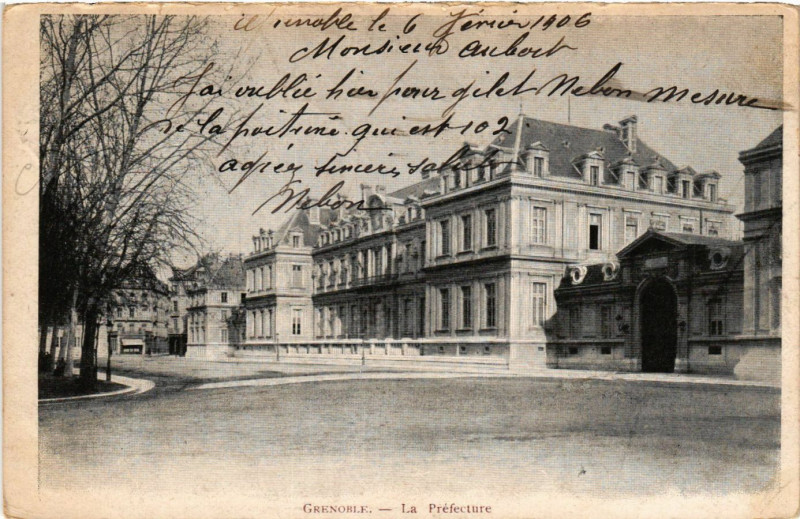 Grenoble le 6 février 1906
Monsieur Aubert
J'ai oublié hier pour gilet Nebon mesure
de la poitrine qui est 102
agréez sincères salut
Nebon
GRENOBLE. — La Préfecture